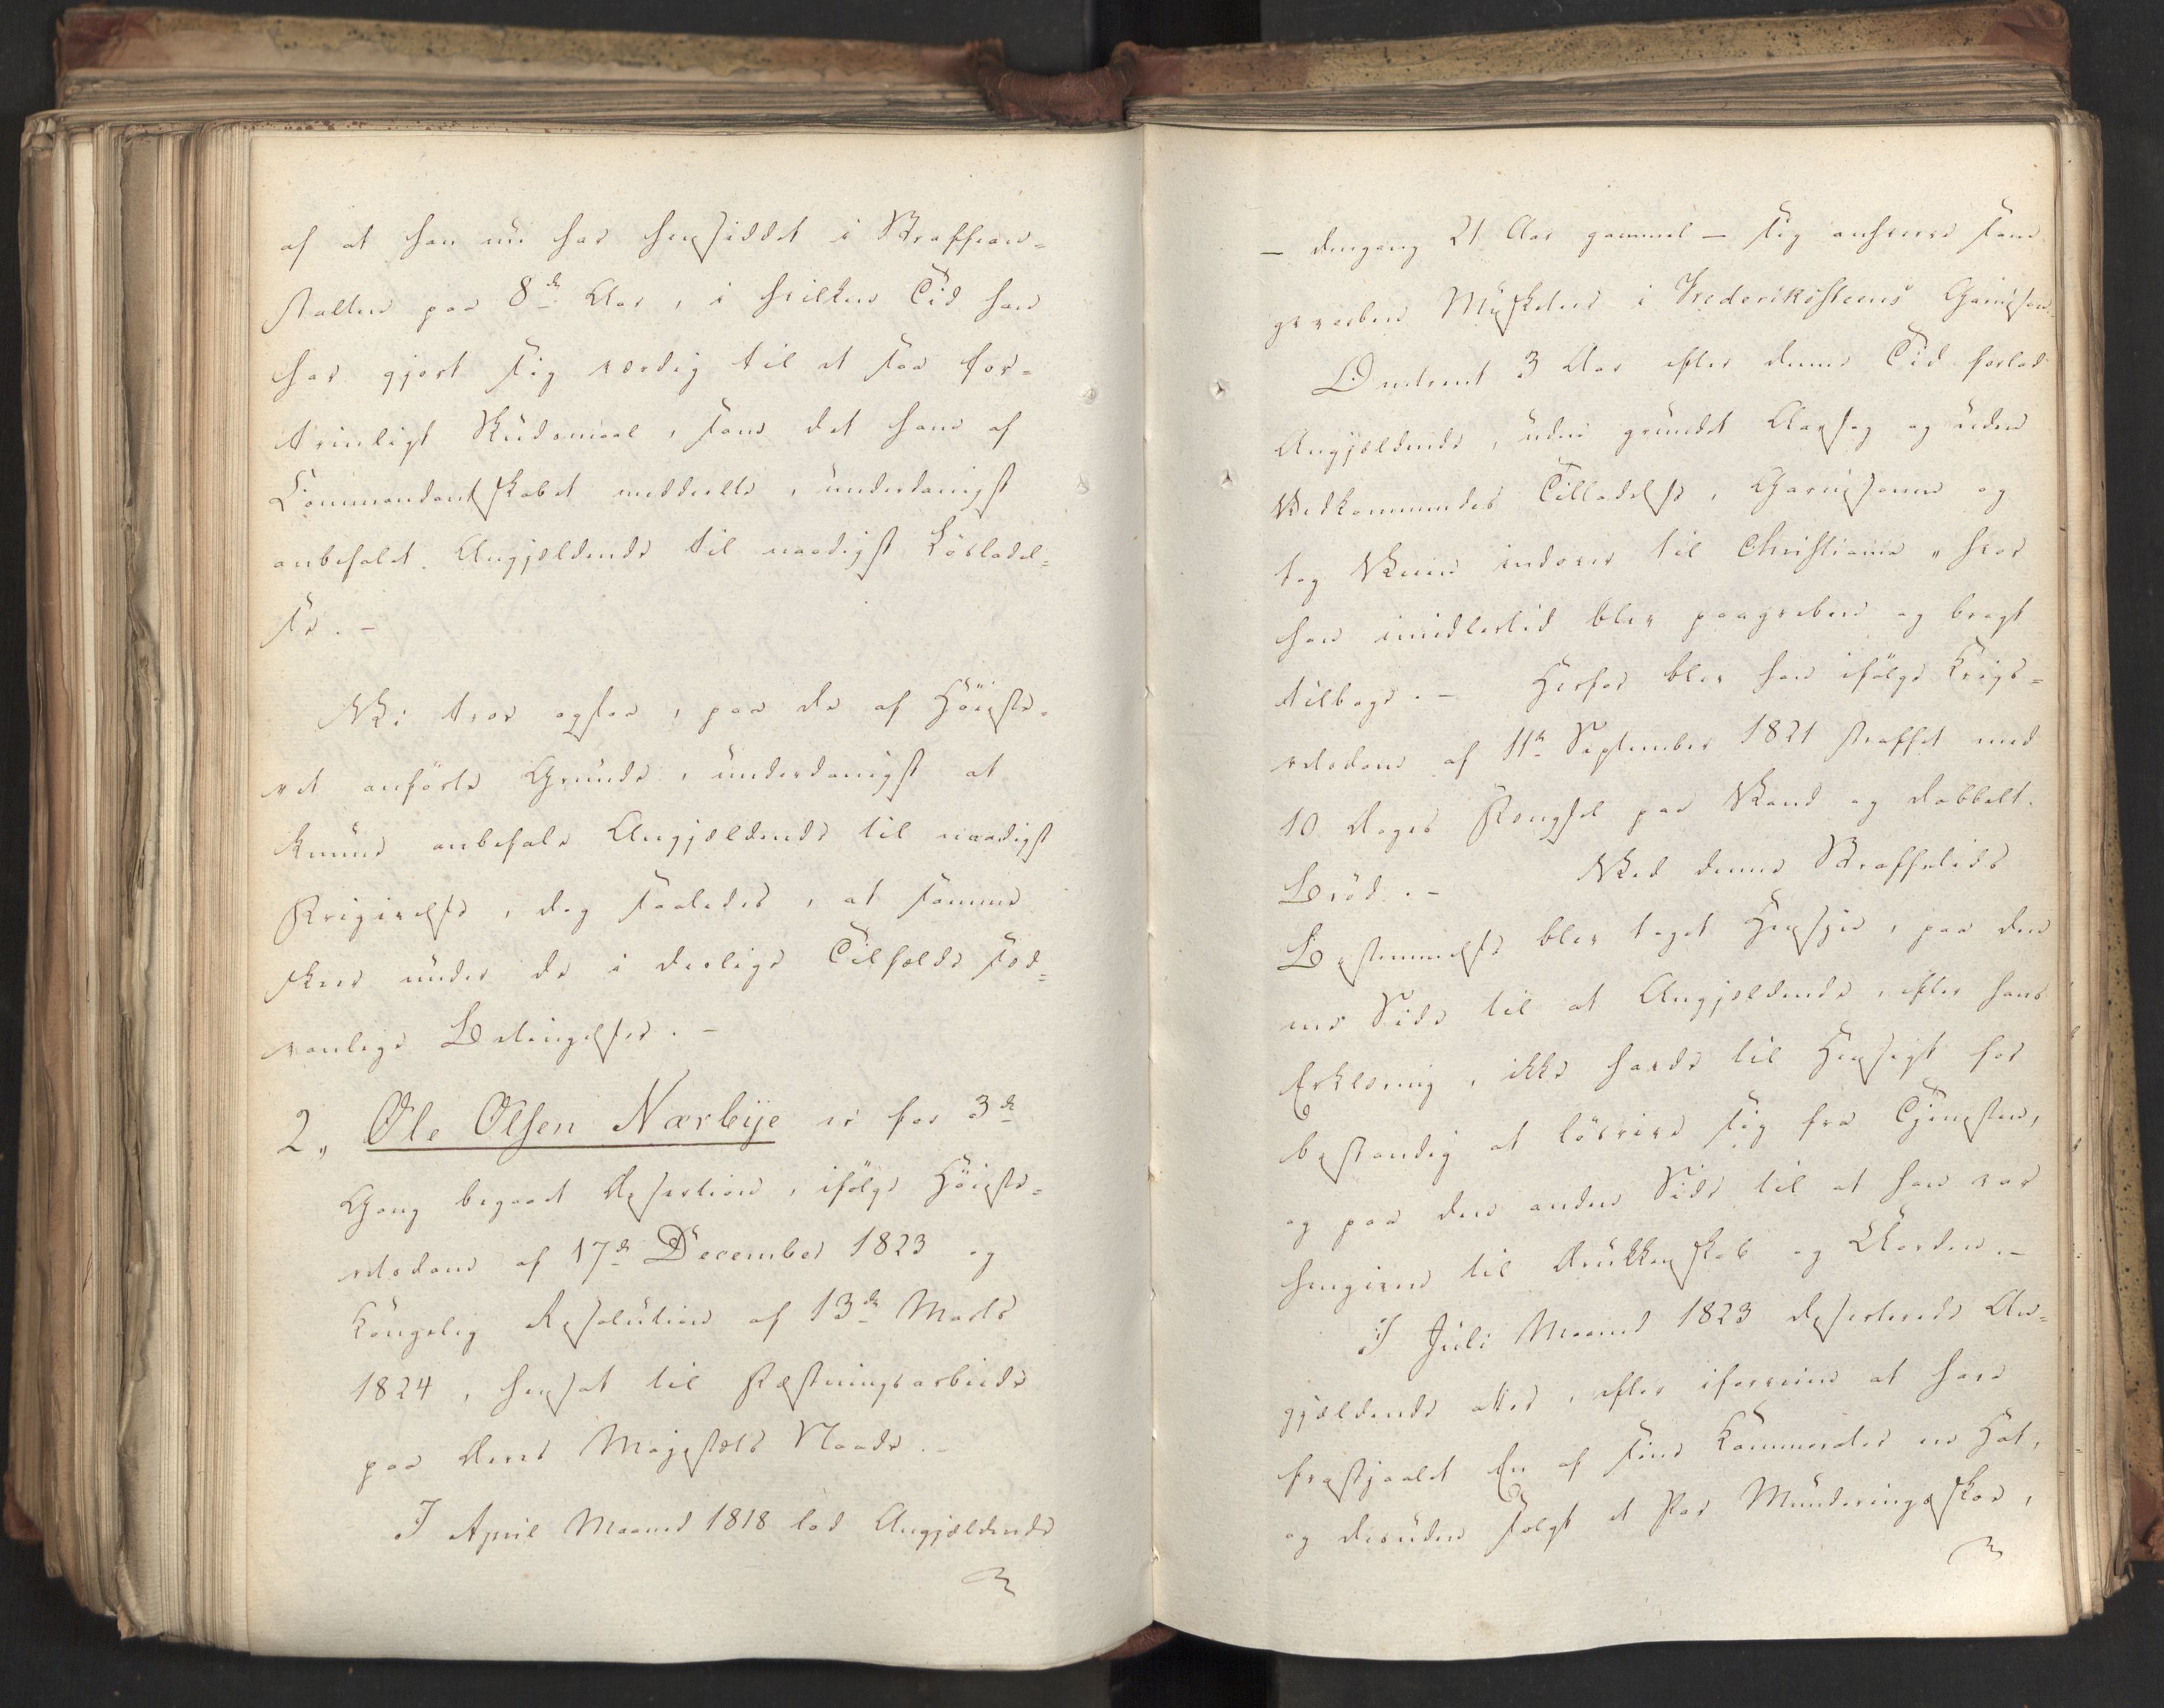 af at han nu har hensiddet i Straffean-
stalten paa 8de Aar, i hvilken Tid han
har gjort sig værdig til et saa for-
trinligt Skudsmaal, som det ham af
Commandantskabet meddeelte, underdanigst
anbefalet Angjældende til naadigst Løsladel-
se. -
Vi troe ogsaa, paa de af Høieste-
ret anførte Grunde, underdanigst at
kunne anbefale Angjældende til naadigst
Frigivelse, dog saaledes, at samme
skeer under de i deslige Tilfælde sæd-
vanlige Betingelser. -
2, Ole Olsen Nærbye er for 3de
Gang begaaet Desertion, ifølge Høieste-
retsdom af 17de December 1823 og
Kongelig Resolution af 13de Marts
1824, hensat til Fæstningsarbeide
paa Deres Majestæts Naade. -
I April Maaned 1818 lod Angjældende
- dengang 21 Aar gammel - sig anhverve som
gevorben Musketeer i Frederikssteens Garnison.
Omtrent 3 Aar efter denne Tid forlod
Angjældende, uden grundet Aarsag og uden
Vedkommendes Tilladelse, Garnisonen og
tog Veien indover til Christiania, hvor
han imidlertid blev paagreben og bragt
tilbage. - Herfor blev han ifølge Krigs-
retsdom af 11te September 1821 straffet med
10 Dages Fængsel paa Vand og dobbelt
Brød. - Ved denne Straffelids
Bestemmelse blev taget Hensyn, paa den
ene Side til at Angjældende, efter hans
Erklæring, ikke havde til Hensigt for
bestandig at løsrive sig fra Tjenesten,
og paa den anden Side til at han var
hengiven til Drukkenskab og Uorden. -
I Juli Maaned 1823 deserterede An-
gjældende atter, efter iforveien at have
frastjaalet En af sine Kammerater en Hat,
og desuden solgt et Par Munderingsskoe,